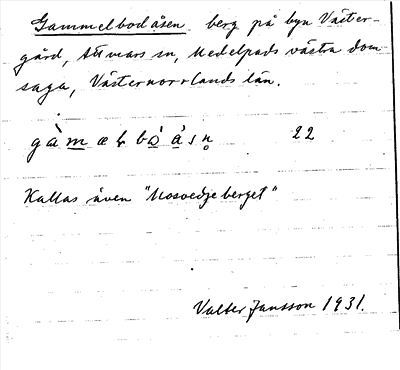 Gammelbodåsen berg på byn Väster-
gård, Attmars sn, Medelpads västra dom-
saga, Västernorrlands län.
gàmæḷbó̱ås̥n̥ 22
Kallas även "Mosvedjeberget"
Valter Jansson 1931.